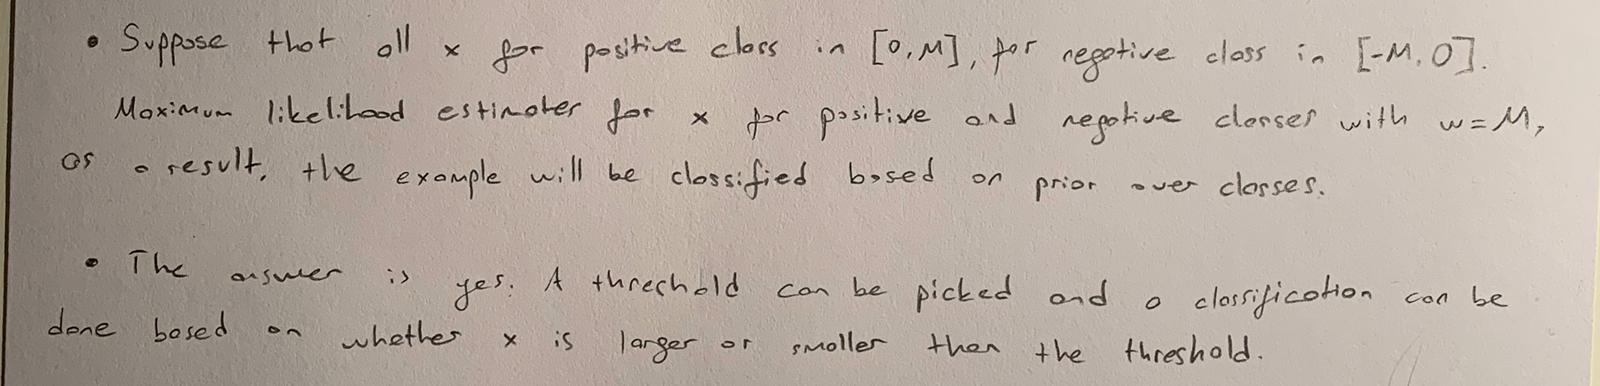 • Suppose that all x for positive class in [0,M], for negative class in [-M,0].
Maximum likelihood estimates for x for positive and negative classes with w=M,
as a result, the example will be classified based on prior over classes.
• The answer is yes. A threshold can be picked and a classification can be
done based on whether x is larger or smaller than the threshold.